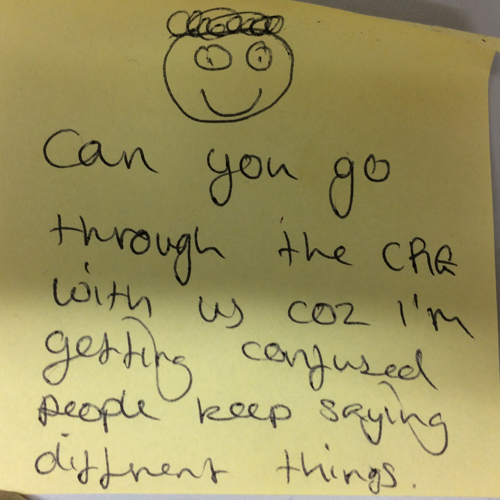 Can you go
through the CRG
with us coz I'm
getting confused
people keep saying
different things.